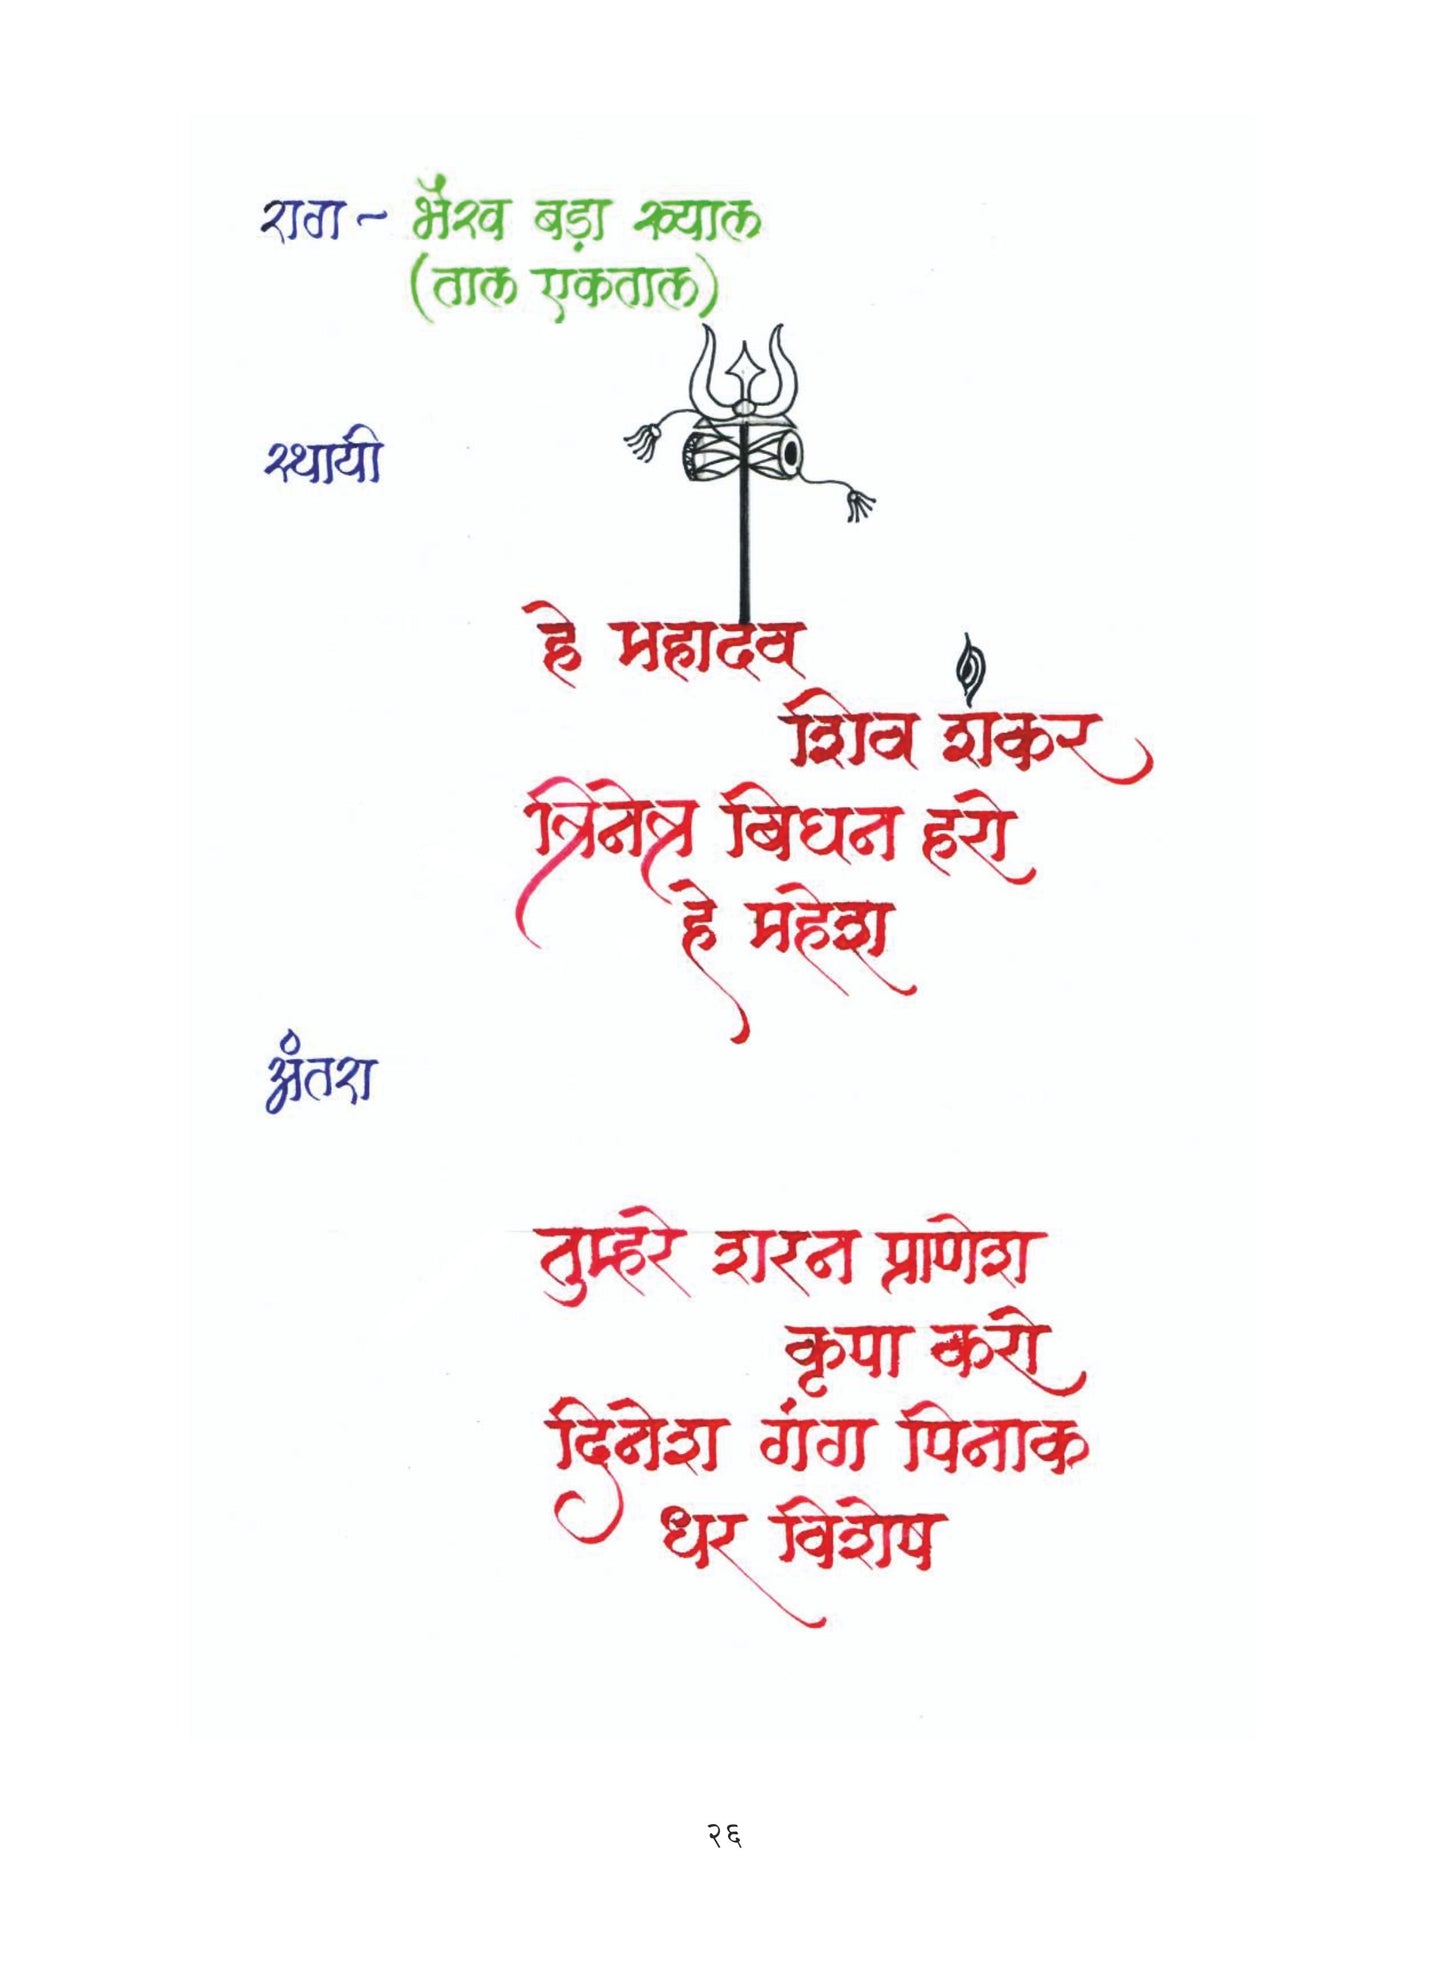 राग - भैरव बड़ा ख्याल
(ताल एकताल)
स्थायी
हे महादेव
शिव शंकर
त्रिनेत्र बिघन हरो
हे महेश
अंतरा
तुम्हरे शरन प्राणेश
कृपा करो
दिनेश गंग पिनाक
धर विशेष
२६